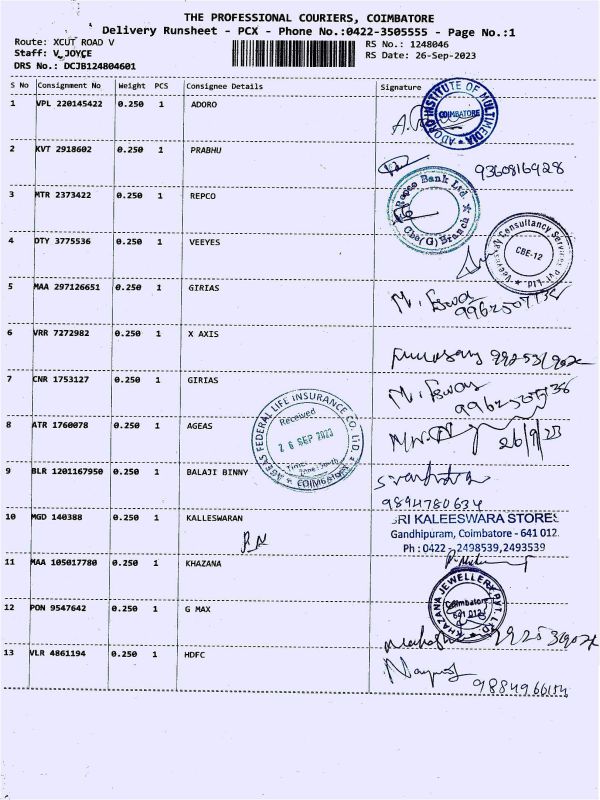 THE PROFESSIONAL COURIERS, COIMBATORE
Delivery Runsheet - PCX - Phone No.:0422-3505555 - Page No.:1
Route: XCUT ROAD V
RS No.: 1248046
Staff: V JOYCE
RS Date: 26-Sep-2023
DRS No.: DCJB124804601
S No Consignment No Weight PCS Consignee Details Signature
1 VPL 220145422 0.250 1 ADORO
ADORO INSTITUTE OF MULTIMEDIA
COIMBATORE
2 KVT 2918602 0.250 1 PRABHU
9360816928
3 MTR 2373422 0.250 1 REPCO
Repco Bank Ltd.
Cbe(G) Branch
4 DTY 3775536 0.250 1 VEEYES
Veeyes Consultancy Services Pvt. Ltd.
CBE-12
5 MAA 297126651 0.250 1 GIRIAS
6 VRR 7272982 0.250 1 X AXIS
7 CNR 1753127 0.250 1 GIRIAS
8 ATR 1760078 0.250 1 AGEAS
AGEAS FEDERAL LIFE INSURANCE CO. LTD.
Received
26 SEP 2023
COIMBATORE
26/9/23
9 BLR 1201167950 0.250 1 BALAJI BINNY
9894780634
10 MGD 140388 0.250 1 KALLESWARAN
SRI KALEESWARA STORES
Gandhipuram, Coimbatore - 641 012.
Ph : 0422 - 2498539,2493539
11 MAA 105017780 0.250 1 KHAZANA
KHAZANA JEWELLERY PVT. LTD
Coimbatore
641 012
12 PON 9547642 0.250 1 G MAX
13 VLR 4861194 0.250 1 HDFC